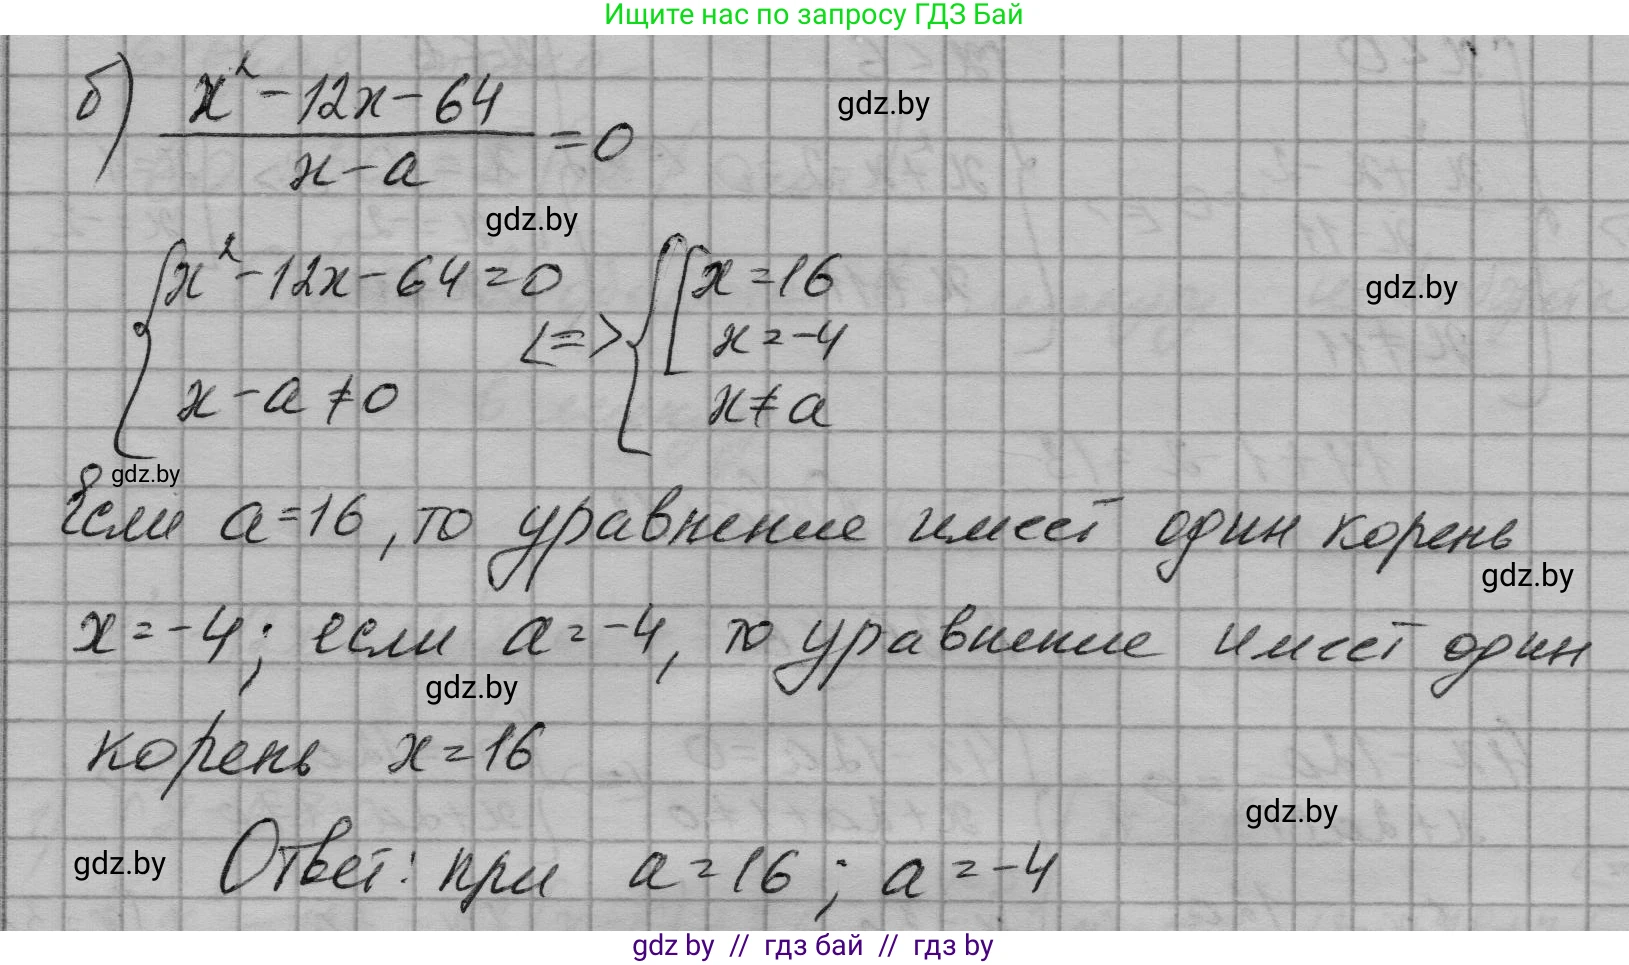 Ищите нас по запросу ГДЗ Бай
б) (x² - 12x - 64)/(x - a) = 0
gdz.by
gdz.by
{ x² - 12x - 64 = 0 <=> { [ x = 16
gdz.by
x = -4
x - a ≠ 0 x ≠ a
gdz.by
Если a = 16, то уравнение имеет один корень
gdz.by
x = -4; если a = -4, то уравнение имеет один
gdz.by
корень x = 16
gdz.by
gdz.by
Ответ: при a = 16; a = -4
gdz by // гдз бай // гдз by